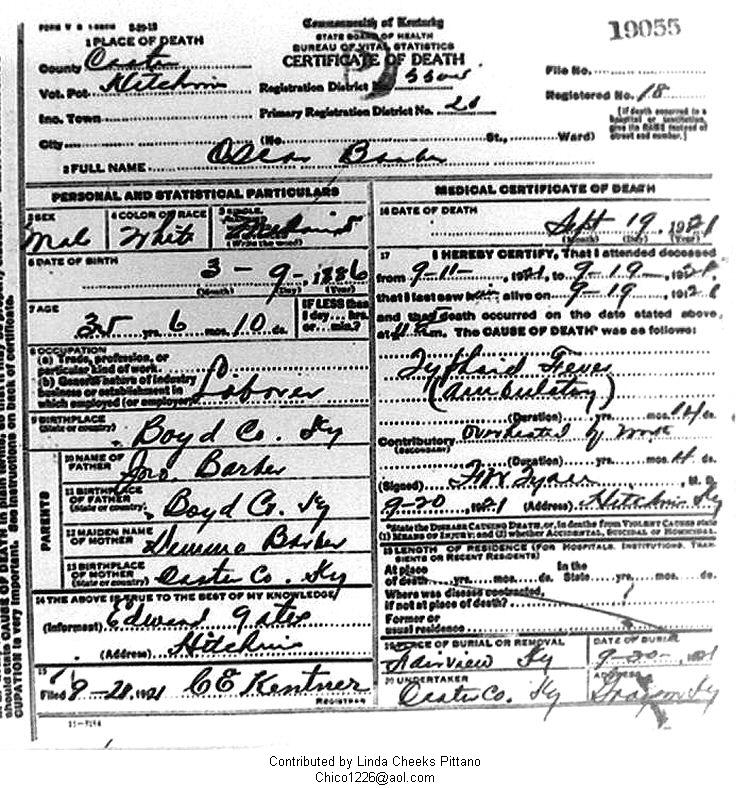 Commonwealth of Kentucky
STATE BOARD OF HEALTH
BUREAU OF VITAL STATISTICS
CERTIFICATE OF DEATH
19055
1 PLACE OF DEATH
County Carter
Vot. Pct. Hitchins
Inc. Town
City
Registration District No.
Primary Registration District No.
(No. St., Ward)
File No.
Registered No. 18
[If death occurred in a hospital or institution, give its NAME instead of street and number.]
2 FULL NAME Oscar Barber
PERSONAL AND STATISTICAL PARTICULARS
3 SEX
Male
4 COLOR OR RACE
White
5 SINGLE,
(Write the word)
6 DATE OF BIRTH
3 - 9 - , 1886
(Month) (Day) (Year)
7 AGE
35 yrs. 6 mos. 10 ds.
IF LESS than
1 day hrs.
or min.?
8 OCCUPATION
(a) Trade, profession, or
particular kind of work
(b) General nature of industry
business or establishment in
which employed (or employer)
Laborer
9 BIRTHPLACE
(State or country)
Boyd Co. Ky
PARENTS
10 NAME OF
FATHER
Jno. Barber
11 BIRTHPLACE
OF FATHER
(State or country)
Boyd Co. Ky
12 MAIDEN NAME
OF MOTHER
Barber
13 BIRTHPLACE
OF MOTHER
(State or country)
Carter Co. Ky
14 THE ABOVE IS TRUE TO THE BEST OF MY KNOWLEDGE
(Informant) Edward Gates
(Address) Hitchins
15
Filed 9-28, 1921 C E Kentner
REGISTRAR
MEDICAL CERTIFICATE OF DEATH
16 DATE OF DEATH
Sept 19, 1921
(Month) (Day) (Year)
17 I HEREBY CERTIFY, That I attended deceased
from 9-11-, 1921, to 9-19-, 192
that I last saw him alive on 9-19, 19
and that death occurred on the date stated above,
at m. The CAUSE OF DEATH* was as follows:
Typhoid Fever
(Ambulatory)
(Duration) yrs. mos. 14 ds.
Contributory Overheated by Work
(SECONDARY)
(Duration) yrs. mos. ds.
(Signed) , M. D.
9-20 1921 (Address) Hitchins Ky
*State the DISEASE CAUSING DEATH, or, in deaths from VIOLENT CAUSES state
(1) MEANS OF INJURY; and (2) whether ACCIDENTAL, SUICIDAL or HOMICIDAL.
18 LENGTH OF RESIDENCE (FOR HOSPITALS, INSTITUTIONS, TRANSIENTS OR RECENT RESIDENTS)
At place In the
of death yrs. mos. ds. State yrs. mos. ds.
Where was disease contracted,
if not at place of death?
Former or
usual residence
19 PLACE OF BURIAL OR REMOVAL
Fairview Ky
DATE OF BURIAL
9-20-, 1921
20 UNDERTAKER
Carter Co. Ky
ADDRESS
Grayson Ky
Contributed by Linda Cheeks Pittano
Chico1226@aol.com